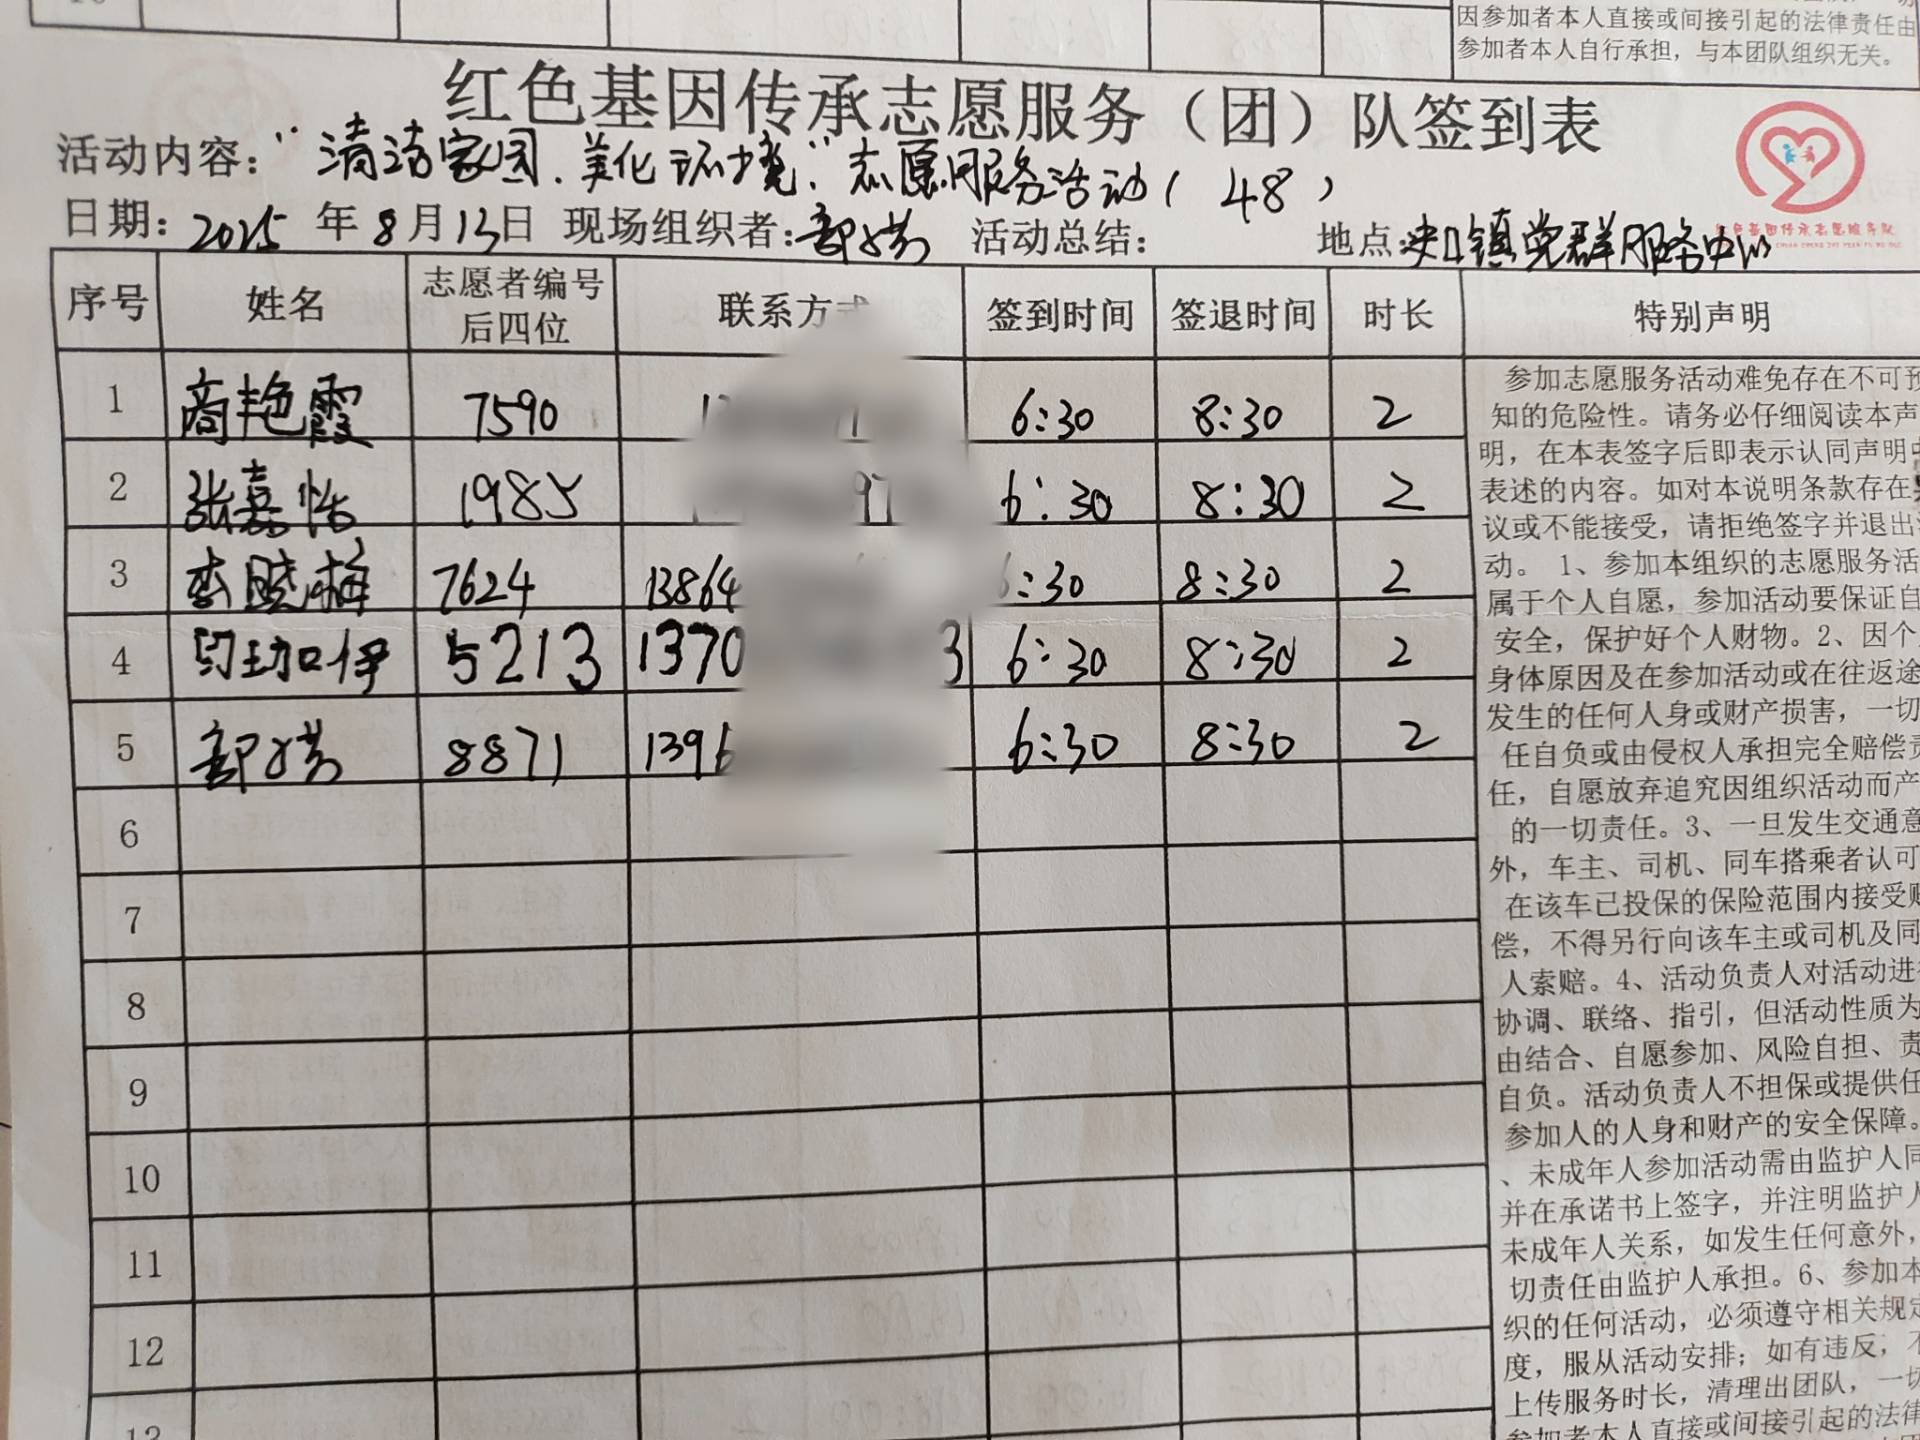 因参加者本人直接或间接引起的法律责任由
参加者本人自行承担，与本团队组织无关。
红色基因传承志愿服务（团）队签到表
活动内容："清洁家园.美化环境"志愿服务活动(48)
日期：2025年8月13日 现场组织者： 活动总结： 地点：夹口镇党群服务中心
红色基因传承志愿服务队
序号 姓名 志愿者编号后四位 联系方式 签到时间 签退时间 时长 特别声明
1 商艳霞 7590 6:30 8:30 2
2 张嘉怡 1985 6:30 8:30 2
3 李晓梅 7624 13864 6:30 8:30 2
4 5213 1370 3 6:30 8:30 2
5 8871 1396 6:30 8:30 2
6
7
8
9
10
11
12
13
参加志愿服务活动难免存在不可预
知的危险性。请务必仔细阅读本声
明，在本表签字后即表示认同声明中
表述的内容。如对本说明条款存在异
议或不能接受，请拒绝签字并退出活
动。 1、参加本组织的志愿服务活
属于个人自愿，参加活动要保证自
安全，保护好个人财物。2、因个
身体原因及在参加活动或在往返途
发生的任何人身或财产损害，一切
任自负或由侵权人承担完全赔偿责
任，自愿放弃追究因组织活动而产
的一切责任。3、一旦发生交通意
外，车主、司机、同车搭乘者认可
在该车已投保的保险范围内接受赔
偿，不得另行向该车主或司机及同
人索赔。4、活动负责人对活动进行
协调、联络、指引，但活动性质为
由结合、自愿参加、风险自担、责
自负。活动负责人不担保或提供任
参加人的人身和财产的安全保障。
、未成年人参加活动需由监护人同
并在承诺书上签字，并注明监护人
未成年人关系，如发生任何意外，
切责任由监护人承担。6、参加本
织的任何活动，必须遵守相关规定
度，服从活动安排；如有违反，不
上传服务时长，清理出团队，一切
参加者本人直接或间接引起的法律